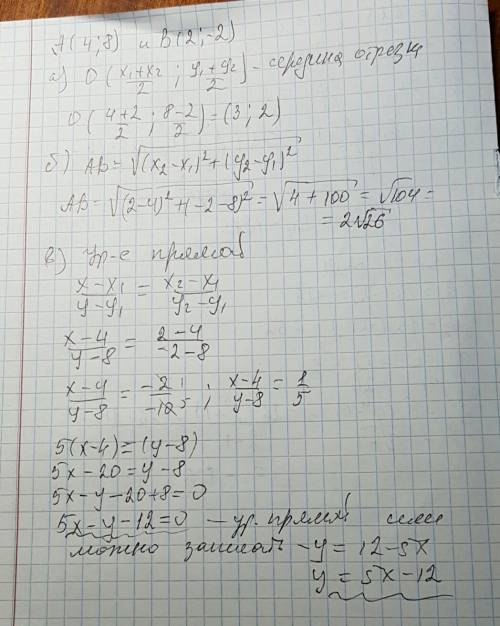 A(4;8) и B(2;-2)
а) O(x₁+x₂/2 ; y₁+y₂/2) - середина отрезка
O(4+2/2 ; 8-2/2) = (3 ; 2)
б) AB = √(x₂-x₁)²+(y₂-y₁)²
AB = √(2-4)²+(-2-8)² = √4+100 = √104 =
= 2√26
в) Ур-е прямой
x-x₁/y-y₁ = x₂-x₁/y₂-y₁
x-4/y-8 = 2-4/-2-8
x-4/y-8 = -2 1/-10 5 ; x-4/y-8 = 1/5
5(x-4)=(y-8)
5x-20=y-8
5x-y-20+8=0
5x-y-12=0 - ур. прямой или
можно записать -y = 12-5x
y = 5x-12